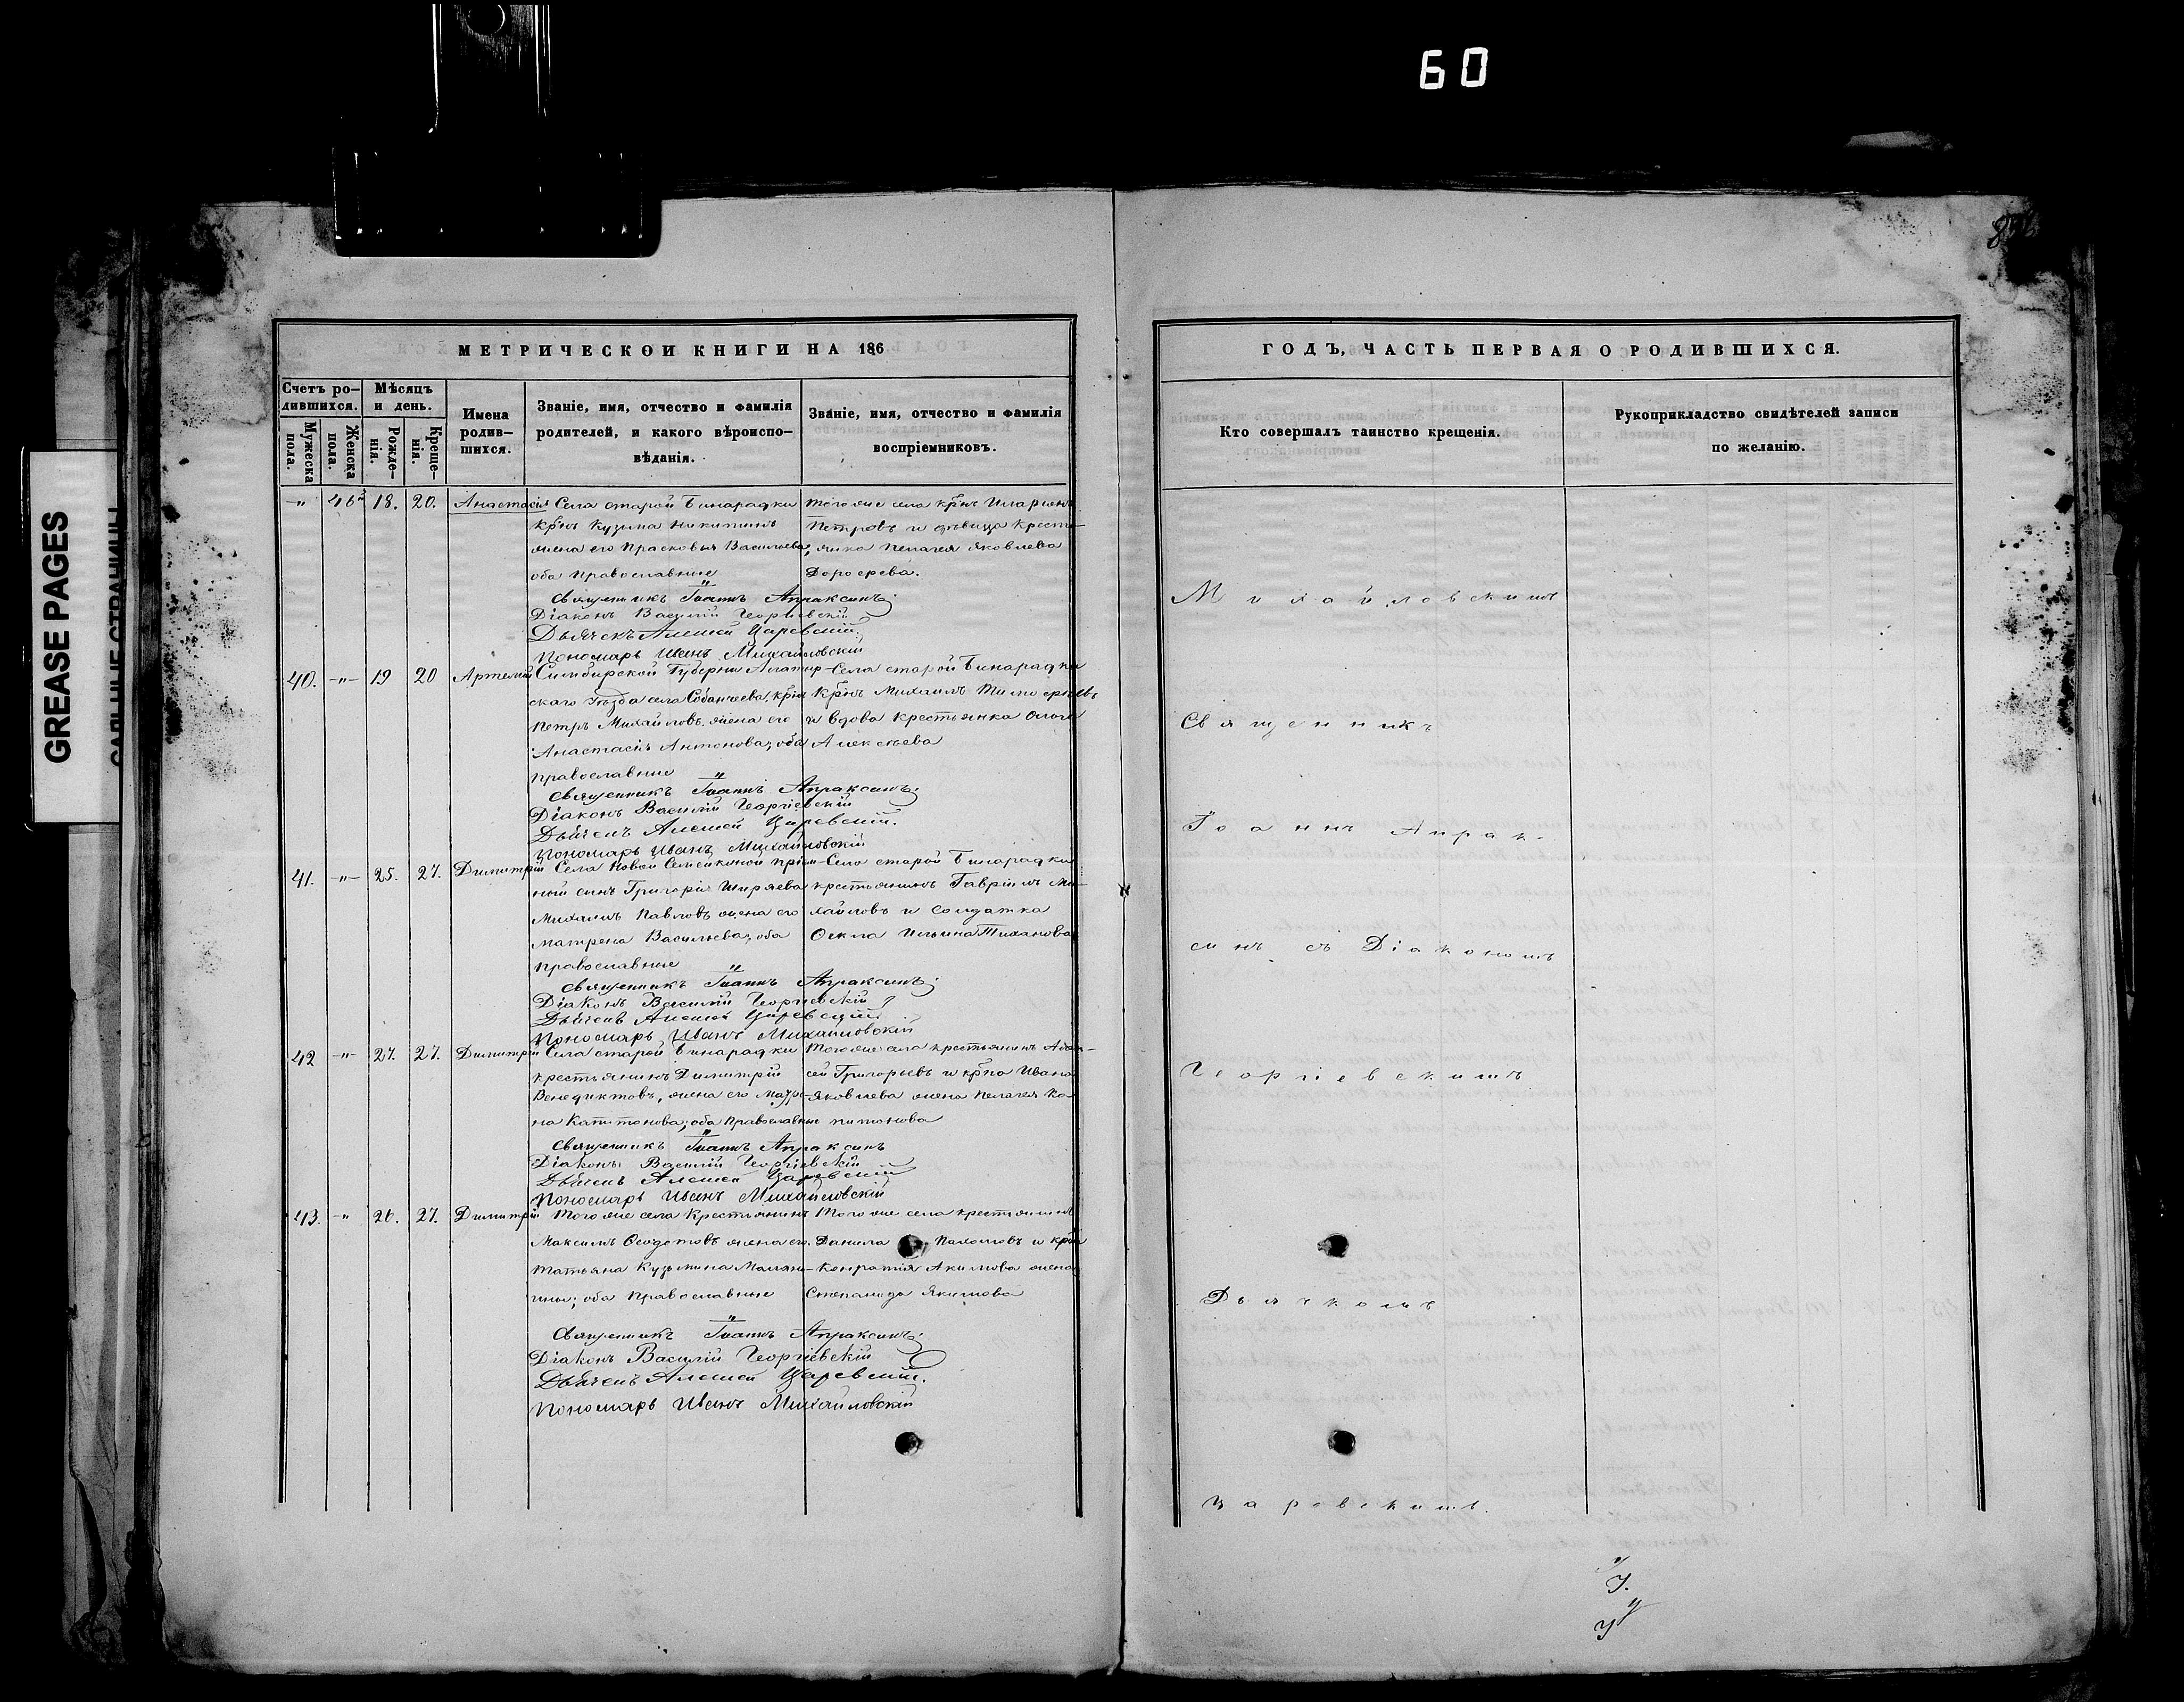 60
GREASE PAGES
МЕТРИЧЕСКОЙ КНИГИ НА 186
Счетъ ро-
дившихся.
Мужеска пола.
Женска пола.
Мѣсяцъ
и день.
Рожде-
нія.
Креще-
нія.
Имена
родив-
шихся.
Званіе, имя, отчество и фамилія
родителей, и какого вѣроиспо-
вѣданія.
Званіе, имя, отчество и фамилія
воспріемниковъ.
" 46 18. 20. Анастасія
Села старой Бинарадки
крнъ Кузьма Никитинъ
жена его Прасковья Васильева,
оба православные
того же села крнъ Иларіонъ
Петровъ и дѣвица крестья-
янка Пелагея Яковлева
Дорофеева.
Священникъ Іоаннъ Апраксинъ;
Діаконъ Василій Георгіевскій
Дьячекъ Алексей Царевскій.
Пономарь Иванъ Михайловскій
40. -"- 19 20 Артемій
Симбирской Губерніи Алатыр-
скаго Уѣзда села Собанчеева, крнъ
Петръ Михайловъ, жена его
Анастасія Антонова; оба
православные
Села старой Бинарадки
крнъ Михаилъ Тимофеевъ
и вдова крестьянка Ольга
Алексѣева
Священникъ Іоаннъ Апраксинъ;
Діаконъ Василій Георгіевскій
Дьячекъ Алексей Царевскій.
Пономарь Иванъ Михайловскій
41. -"- 25. 27. Димитрій
Села Новой Семейкиной пріем-
ный сынъ Григорія Ширяева
Михаилъ Павловъ жена его
Матрена Васильева; оба
православные
Села старой Бинарадки
крестьянинъ Гавріилъ Ми-
хайловъ и солдатка
Фекла Ильина Тиханова
Священникъ Іоаннъ Апраксинъ;
Діаконъ Василій Георгіевскій
Дьячекъ Алексей Царевскій
Пономарь Иванъ Михайловскій
42 -"- 27. 27. Димитрій
Села старой Бинарадки
крестьянинъ Димитрій
Венедиктовъ, жена его Матре-
на Капитонова; оба православные
Того же села крестьянинъ
сей Григорьевъ и крна Ивана
Яковлева жена Пелагея Ка-
питонова
Священникъ Іоаннъ Апраксинъ
Діаконъ Василій Георгіевскій
Дьячекъ Алексей Царевскій
Пономарь Иванъ Михайловскій
43. -" 26. 27. Димитрій
Того же села Крестьянинъ
Максимъ Феодотовъ жена его
Татьяна Кузьмина
оба православные
Того же села крестьянинъ
Данила Пахомовъ и крна
Кондратія Акимова жена
Степанида Якимова
Священникъ Іоаннъ Апраксинъ;
Діаконъ Василій Георгіевскій
Дьячекъ Алексей Царевскій.
Пономарь Иванъ Михайловскій
ГОДЪ, ЧАСТЬ ПЕРВАЯ О РОДИВШИХСЯ.
Кто совершалъ таинство крещенія.
Рукоприкладство свидѣтелей записи
по желанію.
Михайловскимъ
Священникъ
Іоаннъ Апрак-
синъ съ Діакономъ
Георгіевскимъ
Дьячкомъ
Царевскимъ.